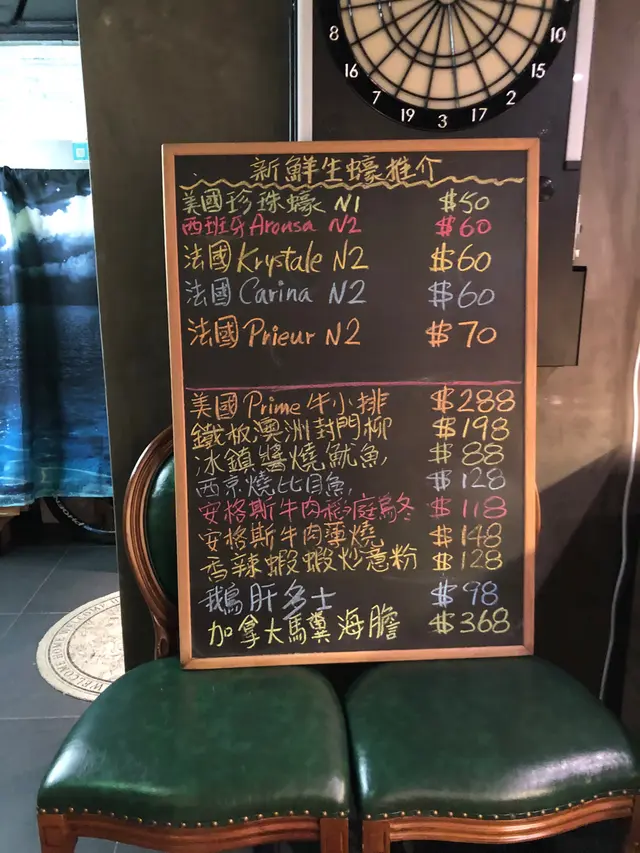 8
16
7
19
3
17
2
15
10
新鮮生蠔推介
美國珍珠蠔 N1 $50
西班牙Arousa N2 $60
法國Krystale N2 $60
法國Carina N2 $60
法國Prieur N2 $70
美國Prime牛小排 $288
鐵板澳洲封門柳 $198
冰鎮醬燒魷魚 $88
西京燒比目魚 $128
安格斯牛肉稻庭烏冬 $118
安格斯牛肉薄燒 $148
香辣蝦蝦炒意粉 $128
鵝肝多士 $98
加拿大馬糞海膽 $368
WELCOME HOME